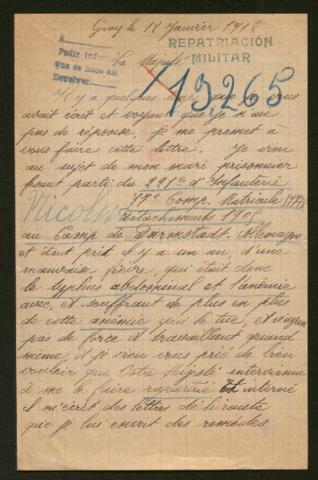 Gray le 14 Janvier 1918
REPATRIACIÓN
MILITAR
A
Pedir infor
Que se hace en
Devolver
Sa Majesté
19,265
Il y a quelques que vous
avait écrit et voyant que je n'ai
pas de réponse, je me promet a
vous faire cette lettre. Je vien
au sujet de mon mari prisonnier
faisant partie du 221e d'Infanterie
17e Comp. Matricule
Nicolas
détachements 1905
au Camp de Darmstadt. Allemagne
et étant prit il y a un an, d'une
mauvaise fièvre, qui était donc
le typhus abdominal et l'anémie
avec, et souffrant de plus en plus
de cette anémie qui le tue, et n'ayant
pas de force et travaillant quand
même, et je vien vous prié de bien
vouloir que Votre Majesté intervienne
à me le faire et interné
il m'écrit des lettres
que je lui envoit des remèdes